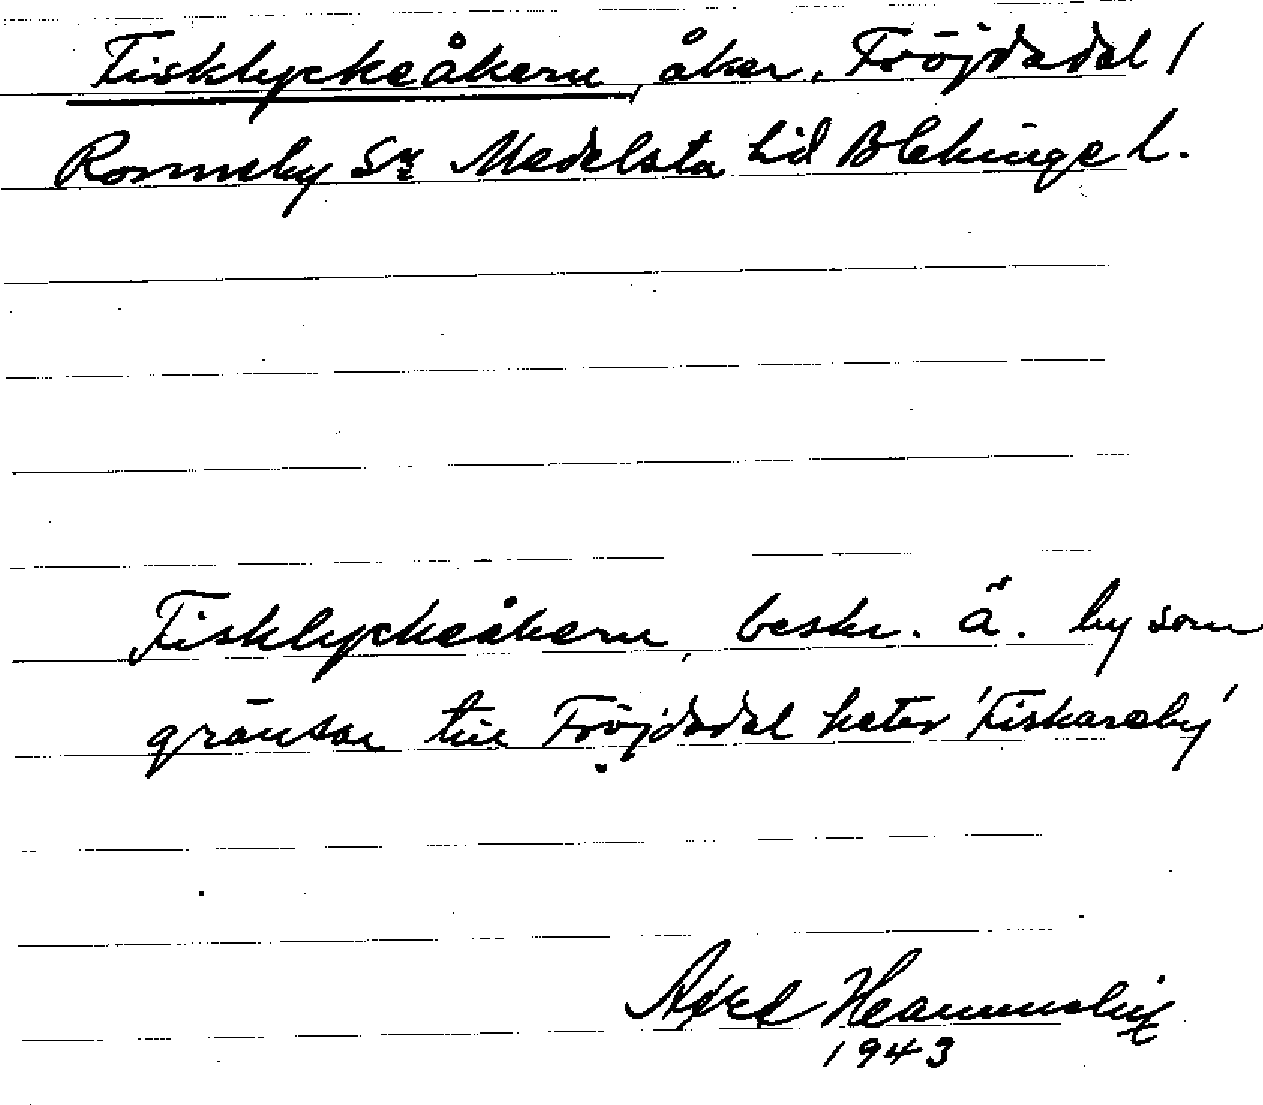 Fisklyckeåkern, åker, Fröjdadal /
Rommeby Sn Medelsta hd Blekinge l.
Fisklyckeåkern, beskr. å. by som
gränsar till Fröjdadal heter 'Fiskareby'
Axel
1943